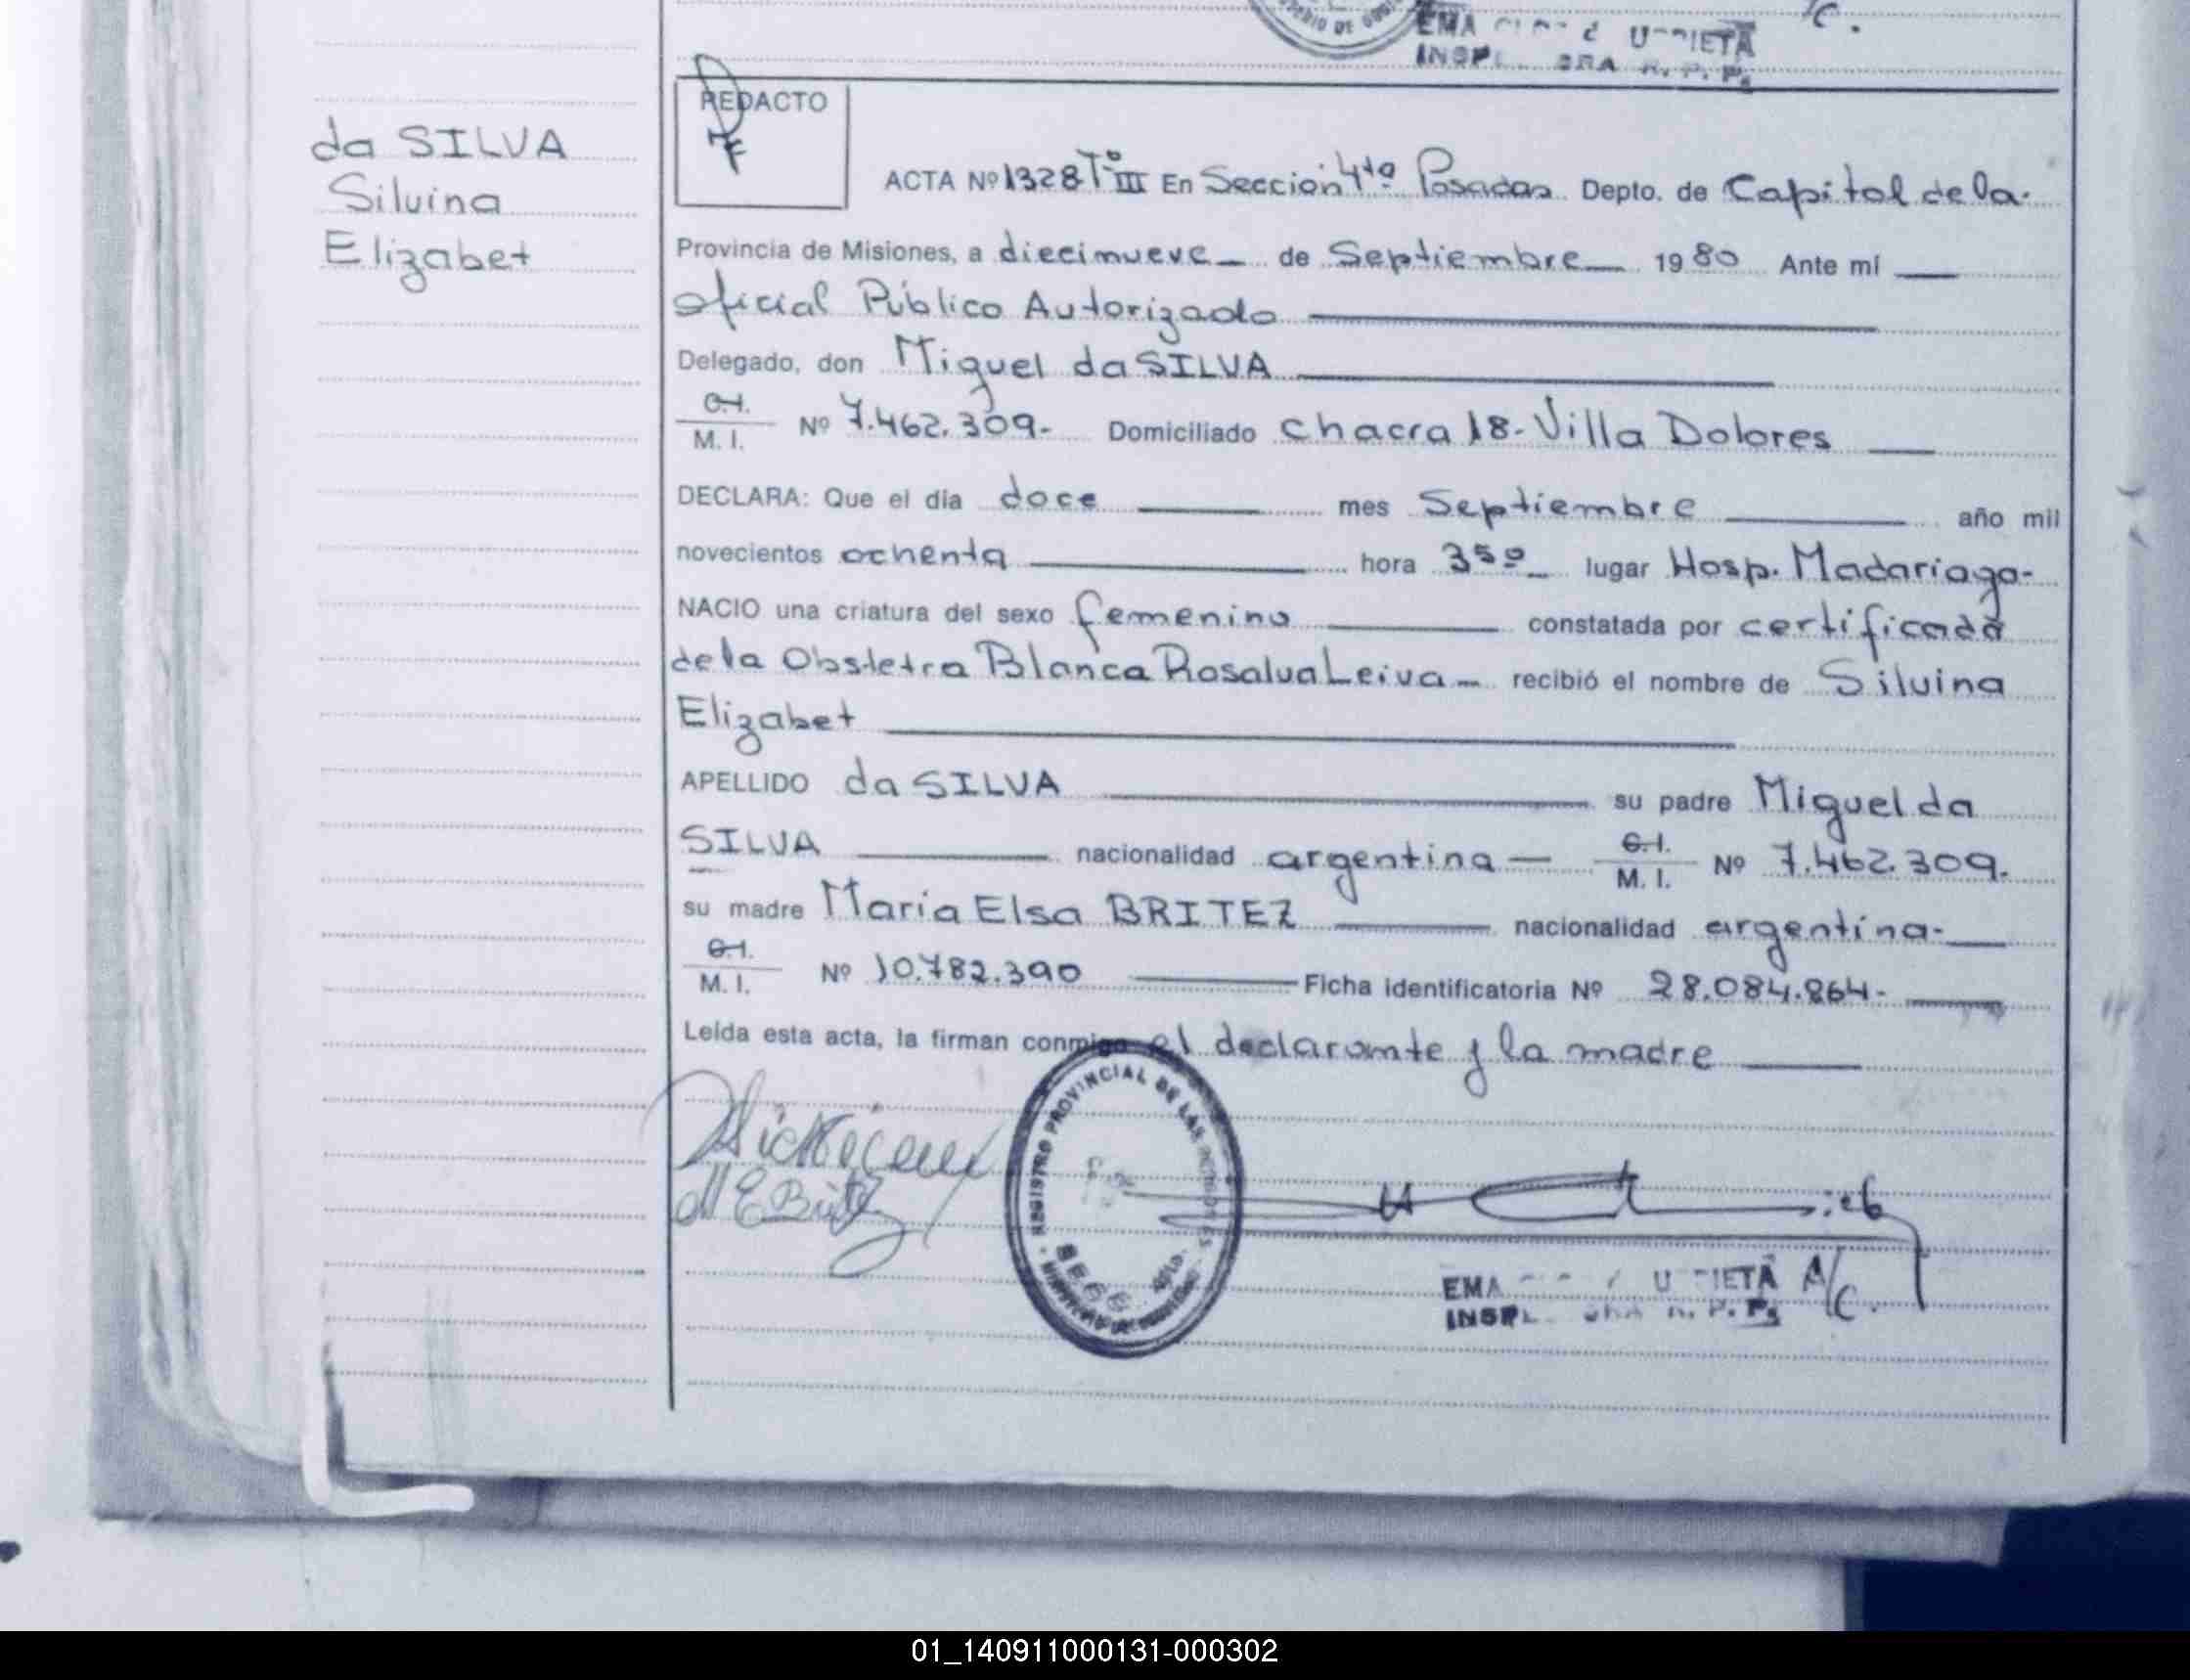 EMA
INSP
REDACTO
da SILVA
Silvina
Elizabet
ACTA Nº 1328 Tº III En Sección 4ta Posadas Depto. de Capital de la
Provincia de Misiones, a diecinueve de Septiembre 1980 Ante mí
Oficial Público Autorizado
Delegado, don Miguel da SILVA
C.I.
M. I. Nº 7.462.309.- Domiciliado Chacra 18- Villa Dolores
DECLARA: Que el día doce mes Septiembre año mil
novecientos ochenta hora 3 50 lugar Hosp. Madariaga-
NACIO una criatura del sexo femenino constatada por certificado
de la Obstetra Blanca Rosalva Leiva recibió el nombre de Silvina
Elizabet
APELLIDO da SILVA su padre Miguel da
SILVA nacionalidad argentina C.I.
M. I. Nº 7.462.309.
su madre Maria Elsa BRITEZ nacionalidad argentina-
C.I.
M. I. Nº 10.782.390 Ficha identificatoria Nº 28.084.864-
Leída esta acta, la firman conmigo el declarante y la madre
REGISTRO PROVINCIAL DE LAS
M E Britez
EMA A/C.
INSP R. P. P.
01_140911000131-000302